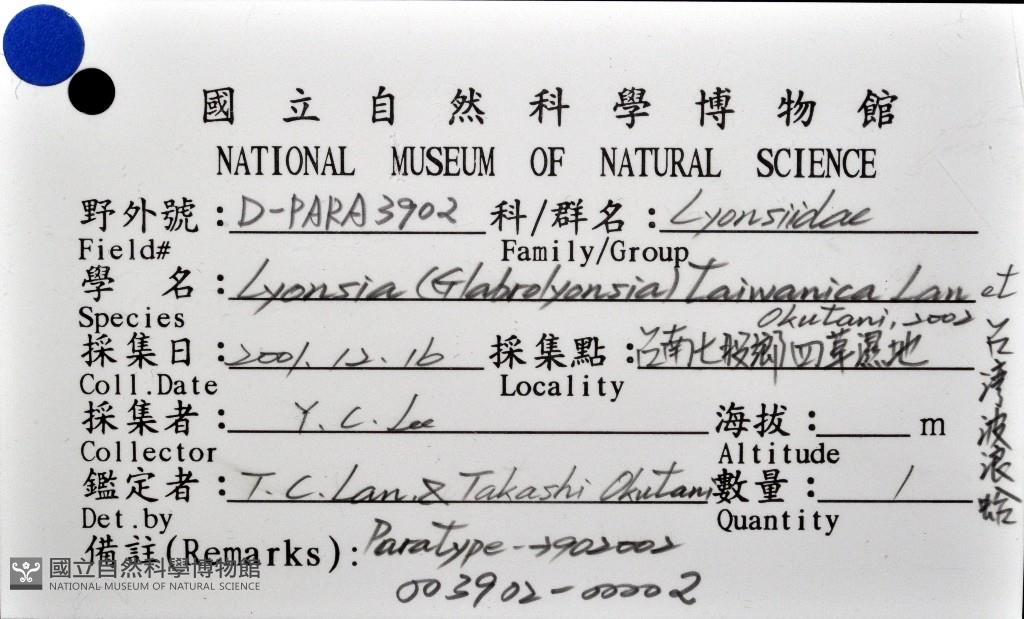 國立自然科學博物館
NATIONAL MUSEUM OF NATURAL SCIENCE
野外號：D-PARA3902 科/群名：Lyonsiidae
Field# Family/Group
學 名：Lyonsia (Glabrolyonsia) Taiwanica Lan et
Species Okutani, 2002
採集日：2001.12.16 採集點：台南七股鄉四草濕地
Coll.Date Locality
採集者：Y. C. Lee 海拔： m
Collector Altitude
鑑定者：T. C. Lan. & Takashi Okutani 數量：1
Det.by Quantity
備註(Remarks)：Paratype-3902002
003902-00002
台灣波浪蛤
國立自然科學博物館
NATIONAL MUSEUM OF NATURAL SCIENCE